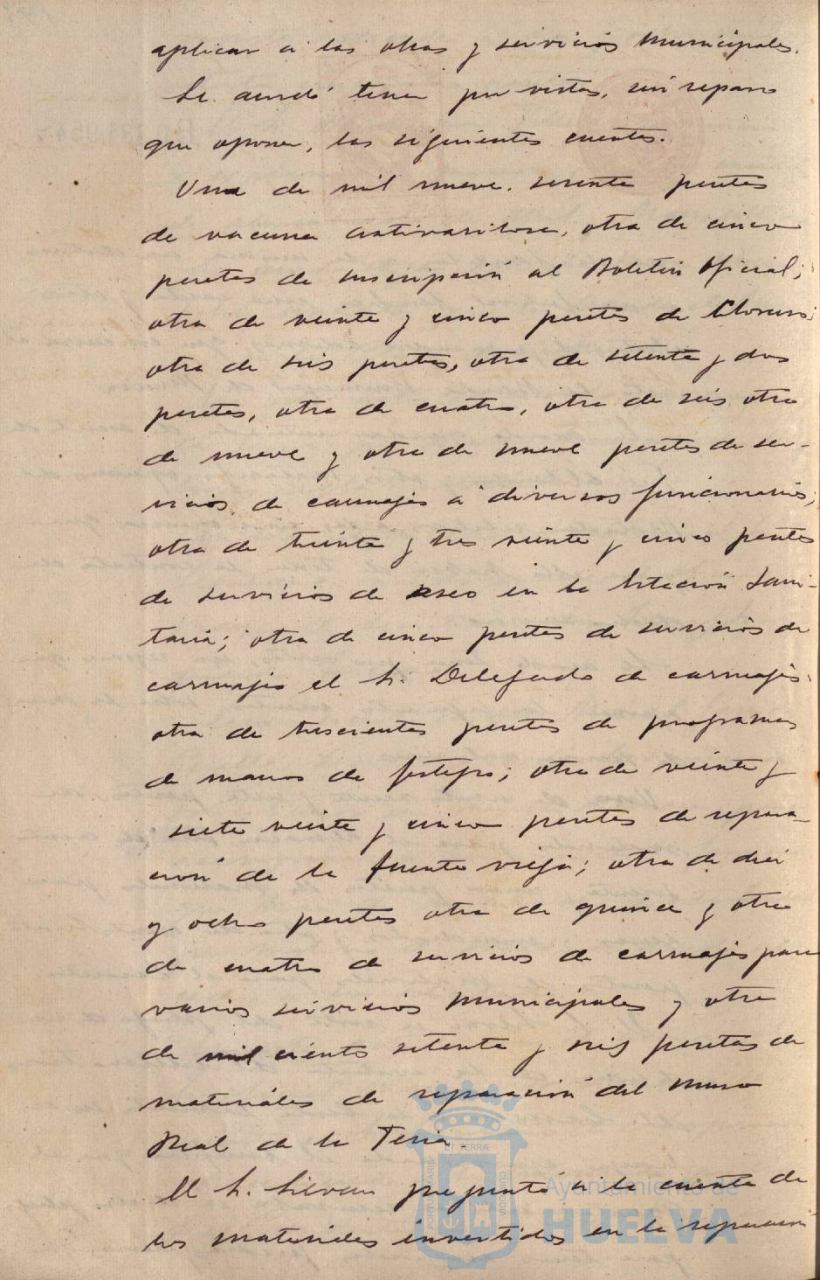 aplicar a las obras y servicios municipales.
Se acordó tener por vistas, sin reparo
que oponer, las siguientes cuentas.
Una de mil nueve. sesenta pesetas
de vacuna antivariolosa, otra de cinco
pesetas de suscripción al Boletin Oficial;
otra de veinte y cinco pesetas de Cloruro;
otra de seis pesetas, otra de setenta y dos
pesetas, otra de cuatro, otra de seis otra
de nueve y otra de nueve pesetas de ser-
vicios de carruajes a diversos funcionarios;
otra de treinta y tres veinte y cinco pesetas
de servicios de aseo en la Estación Sani-
taria; otra de cinco pesetas de servicios de
carruajes el S. Delegado de carruajes.
otra de trescientas pesetas de programas
de manos de festejos; otra de veinte y
siete veinte y cinco pesetas de repara-
ción de la fuente vieja; otra de diez
y ocho pesetas otra de quince y otra
de cuatro de servicios de carruajes para
varios servicios municipales y otra
de mil ciento setenta y seis pesetas de
materiales de reparación del muro
Real de la Feria.
El S. preguntó a la cuenta de
los materiales invertidos en la reparación
Ayuntamiento de
HUELVA